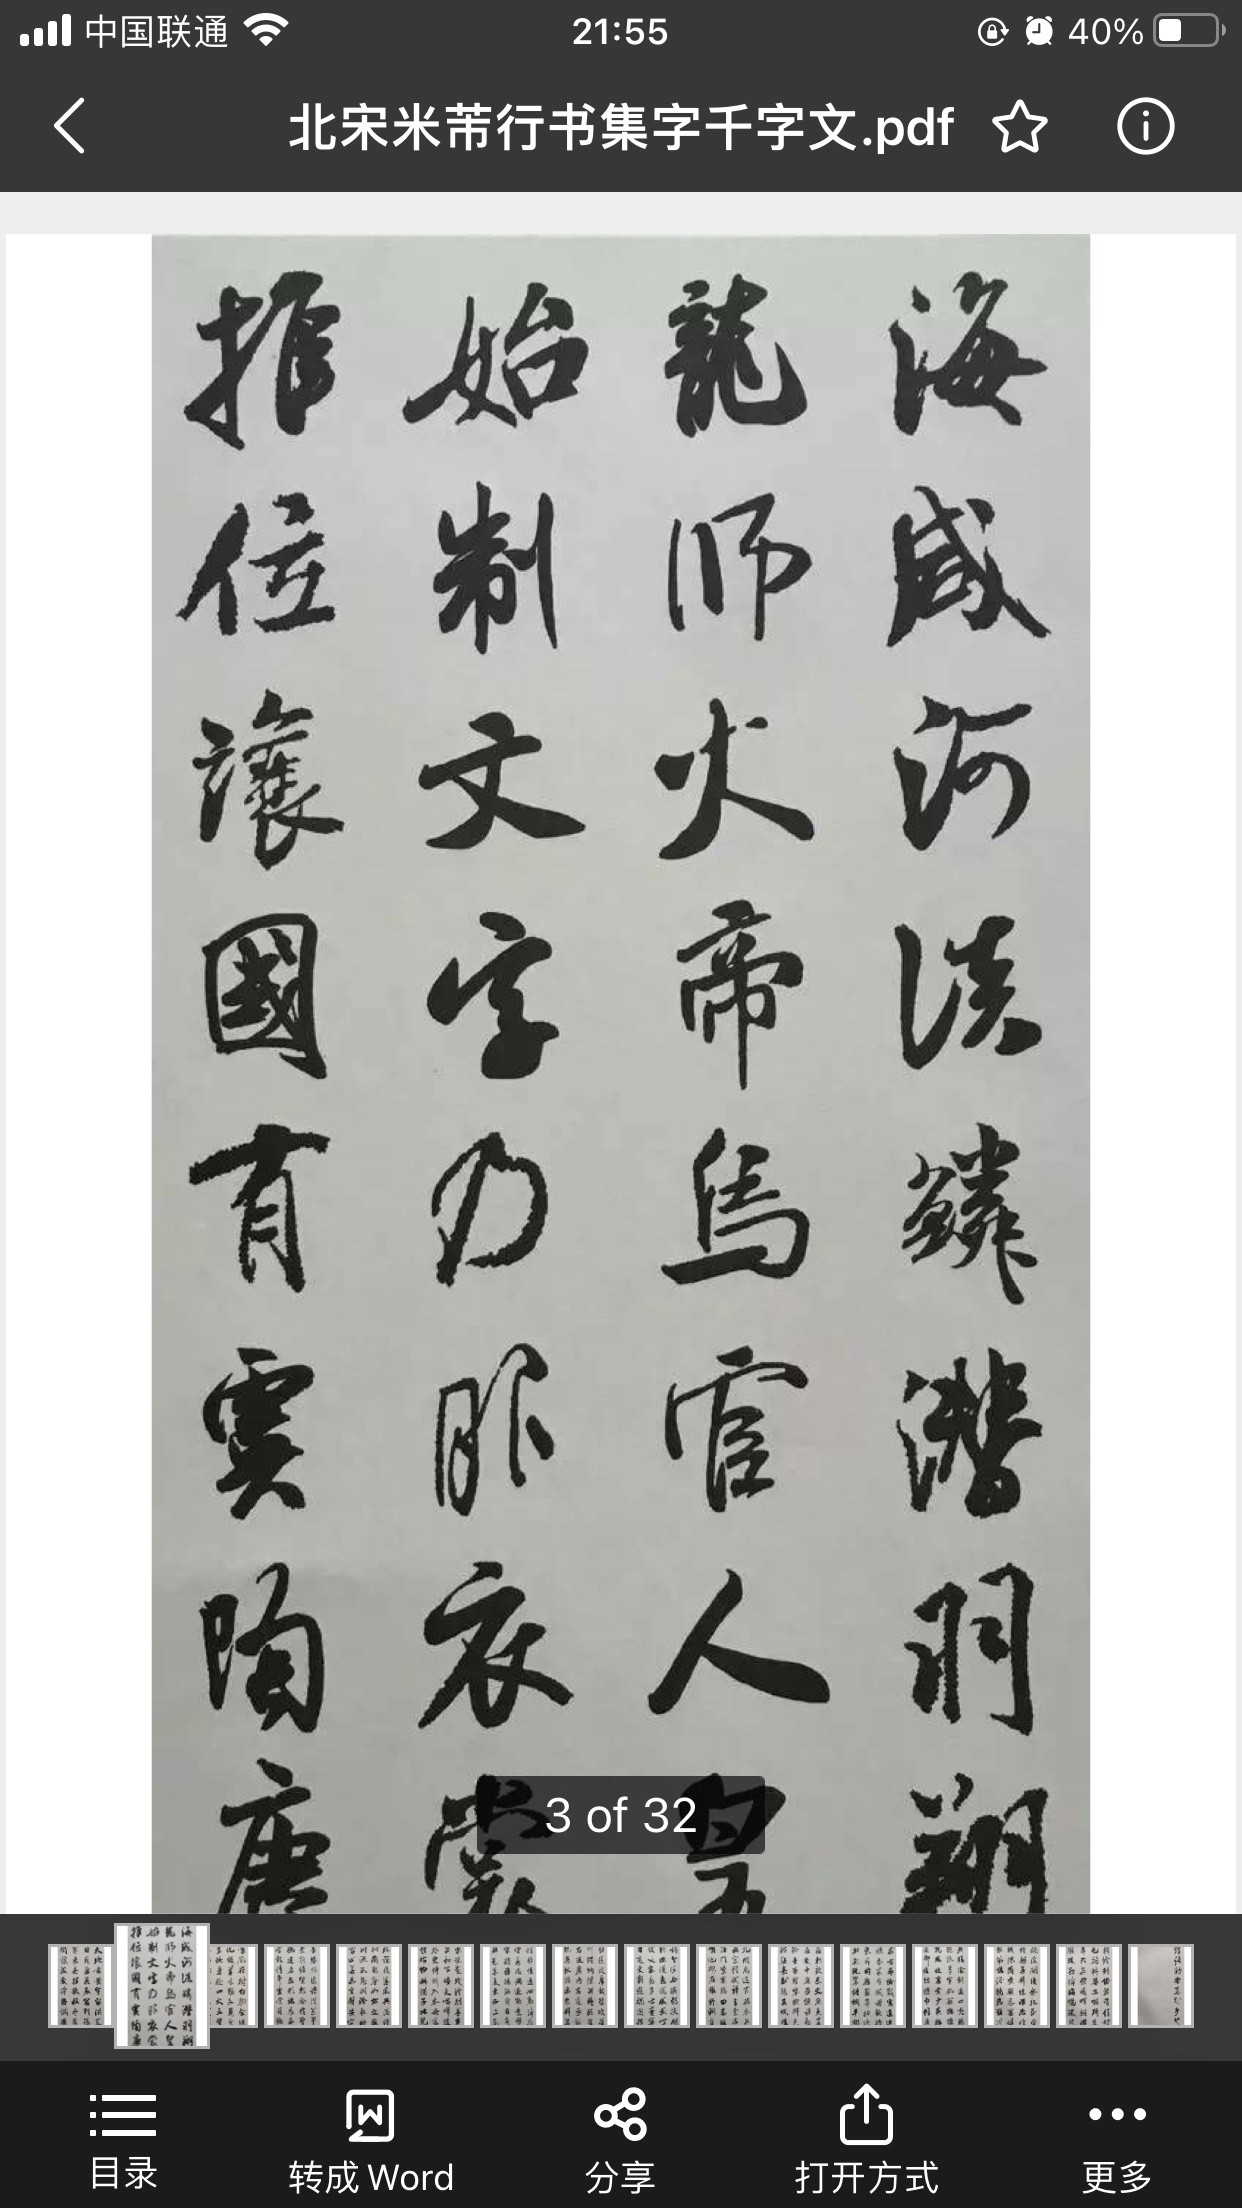 中国联通 21:55 40%
北宋米芾行书集字千字文.pdf
海咸河淡鳞潜羽翔
龍师火帝鳥官人皇
始制文字乃服衣裳
推位讓國有虞陶唐
3 of 32
目录 转成Word 分享 打开方式 更多